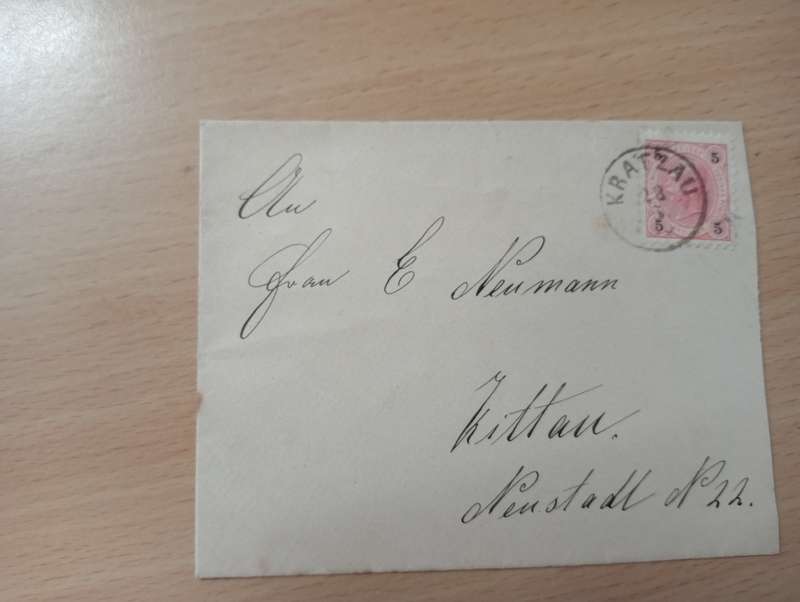 KRATZAU
5
5
5
An
Frau E Neumann
Zittau.
Neustadt N 22.